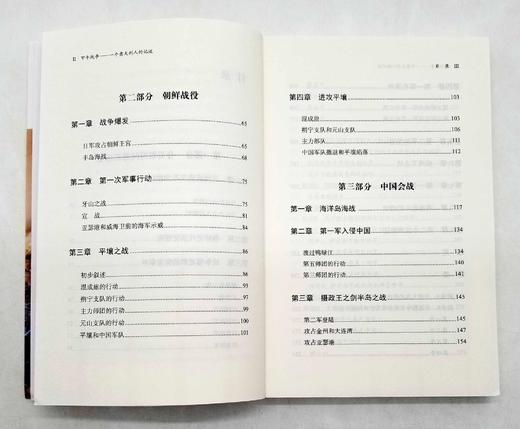 II 甲午战争——一个意大利人的记述
第二部分 朝鲜战役
第一章 战争爆发 65
日军攻占朝鲜王宫 65
丰岛海战 68
第二章 第一次军事行动 75
牙山之战 75
宣 战 76
亚瑟港和威海卫前的海军示威 81
第三章 平壤之战 86
初步叙述 86
混成旅的行动 93
朔宁支队的行动 97
主力师团的行动 98
元山支队的行动 100
平壤和中国军队 101
目 录 III
第四章 进攻平壤 103
混成旅 103
朔宁支队和元山支队 106
主力部队 111
中国军队撤退和平壤陷落 112
第三部分 中国会战
第一章 海洋岛海战 117
第二章 第一军入侵中国 134
渡过鸭绿江 134
第五师团的行动 140
第三师团的行动 141
第三章 摄政王之剑半岛之战 145
第二军登陆 145
攻占金州和大连湾 147
攻占亚瑟港 154